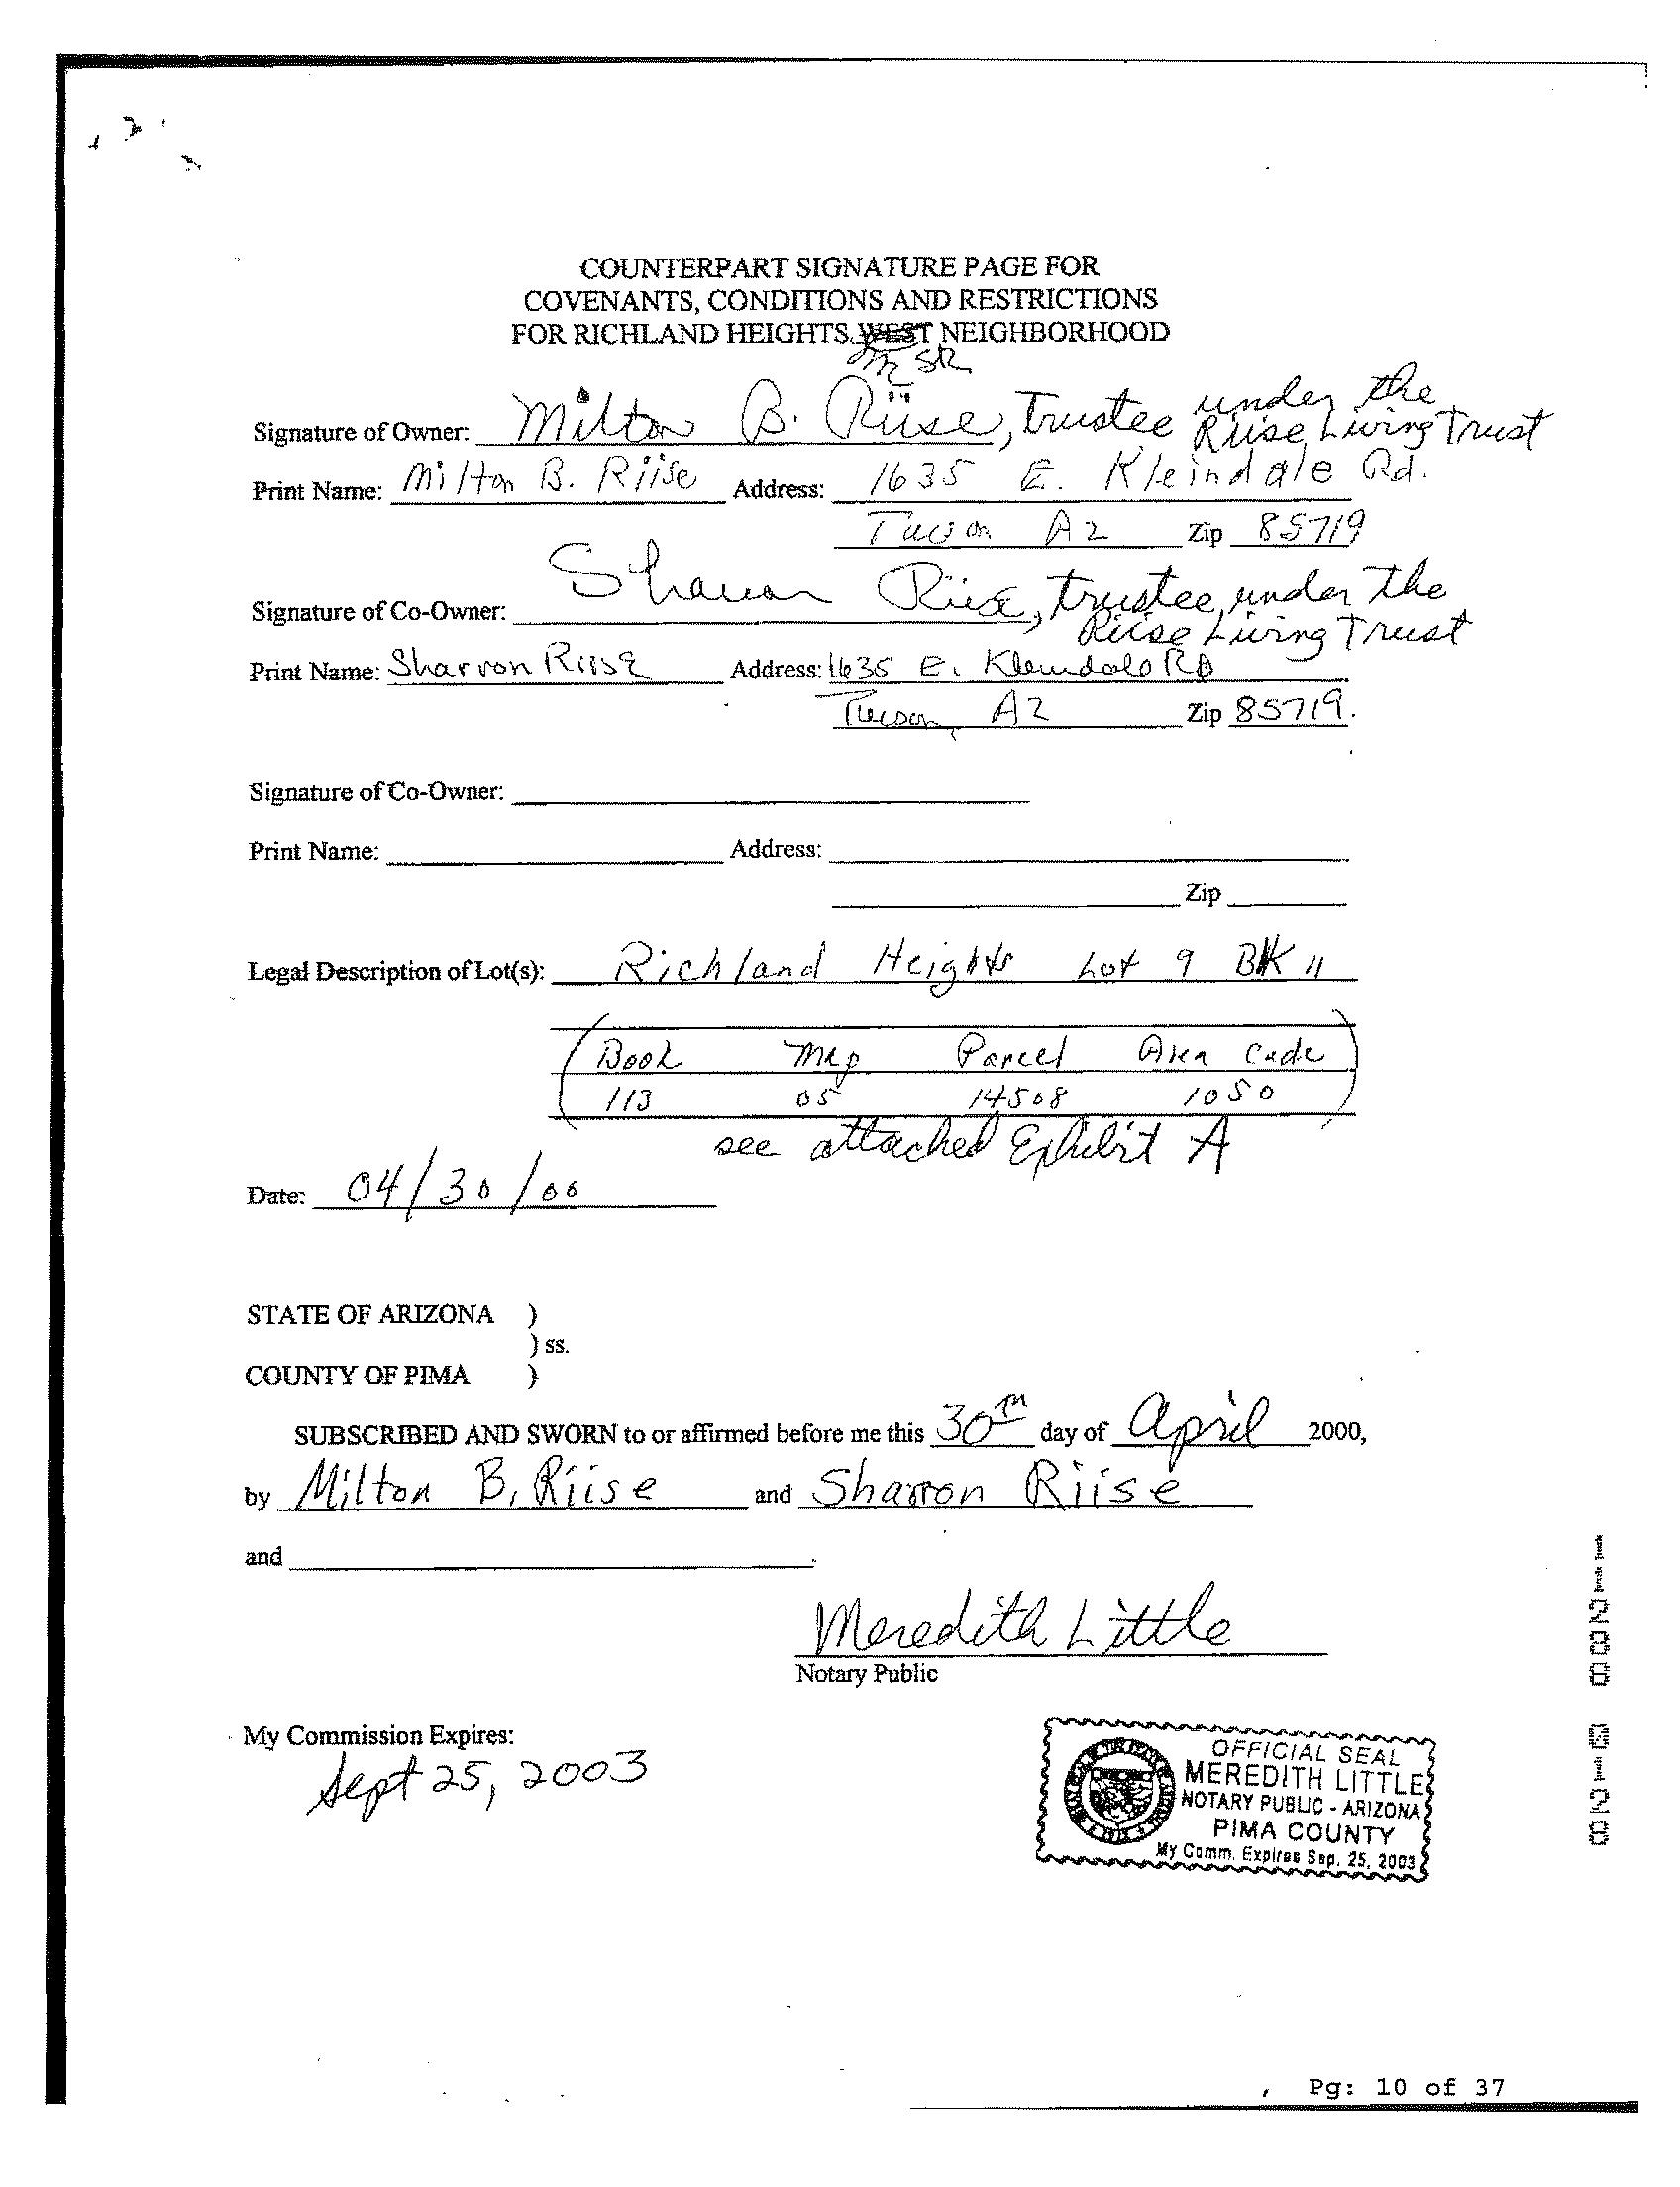 COUNTERPART SIGNATURE PAGE FOR
COVENANTS, CONDITIONS AND RESTRICTIONS
FOR RICHLAND HEIGHTS WEST NEIGHBORHOOD
SR
Signature of Owner: Milton B. Riise, Trustee under the
Riise Living Trust
Print Name: Milton B. Riise Address: 1635 E. Kleindale Rd.
Tucson AZ Zip 85719
Signature of Co-Owner: Sharron Riise, trustee, under the
Riise Living Trust
Print Name: Sharron Riise Address: 1635 E. Kleindale RD
Tucson, AZ Zip 85719.
Signature of Co-Owner:
Print Name: Address:
Zip
Legal Description of Lot(s): Richland Heights Lot 9 BK 11
(Book Map Parcel Area Code)
113 05 14508 1050
see attached Exhibit A
Date: 04/30/00
STATE OF ARIZONA )
) ss.
COUNTY OF PIMA )
SUBSCRIBED AND SWORN to or affirmed before me this 30th day of April 2000,
by Milton B. Riise and Sharron Riise
and
Meredith Little
Notary Public
My Commission Expires:
Sept 25, 2003
OFFICIAL SEAL
MEREDITH LITTLE
NOTARY PUBLIC - ARIZONA
PIMA COUNTY
My Comm. Expires Sep. 25, 2003
Pg: 10 of 37